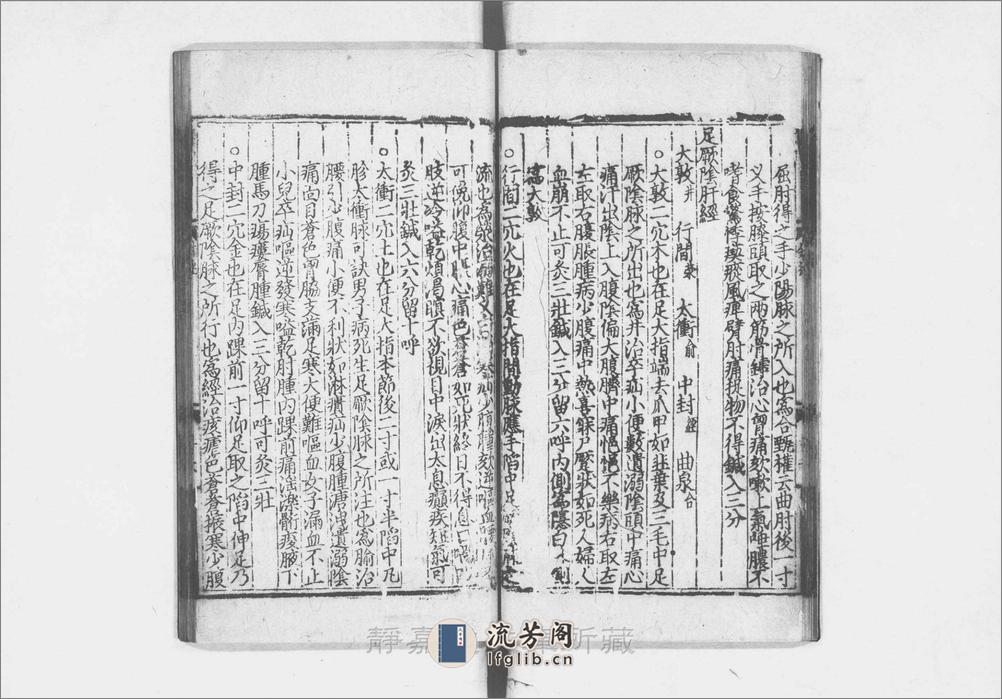 屈肘得之手少陽脉之所入也為合甄權云曲肘後一寸
叉手按膝頭取之兩筋骨罅治心胷痛欬嗽上氣唾膿不
嗜食驚悸瘈瘲風痺臂肘痛捉物不得鍼入三分
足厥陰肝經
大敦井 行間滎 太衝俞 中封經 曲泉合
○大敦二穴木也在足大指端去爪甲如韭葉及三毛中足
厥陰脉之所出也為井治卒疝小便數遺溺陰頭中痛心
痛汗出陰上入腹陰偏大腹臍中痛悒悒不樂病右取左
左取右腹脹腫病少腹痛中熱喜寐尸厥狀如死人婦人
血崩不止可灸三壯鍼入三分留六呼內側為隱白
為大敦
○行間二穴火也在足大指間動脉應手陷中足
流也為滎治溺難
可俛仰腹中脹心痛色蒼蒼如死狀終日不得息口
肢逆冷嗌乾煩渴瞋不欲視目中淚出太息癲疾短氣可
灸三壯鍼入六分留十呼
○太衝二穴土也在足大指本節後二寸或一寸半陷中凡
胗太衝脉可訣男子病死生足厥陰脉之所注也為腧治
腰引少腹痛小便不利狀如淋㿉疝少腹腫溏泄遺溺陰
痛面目蒼色胷脇支滿足寒大便難嘔血女子漏血不止
小兒卒疝嘔逆發寒嗌乾肘腫內踝前痛淫濼䯒痠腋下
腫馬刀瘍瘻脣腫鍼入三分留十呼可灸三壯
○中封二穴金也在足內踝前一寸仰足取之陷中伸足乃
得之足厥陰脉之所行也為經治痎瘧色蒼蒼振寒少腹
靜嘉 所藏
流芳阁
lfglib.cn